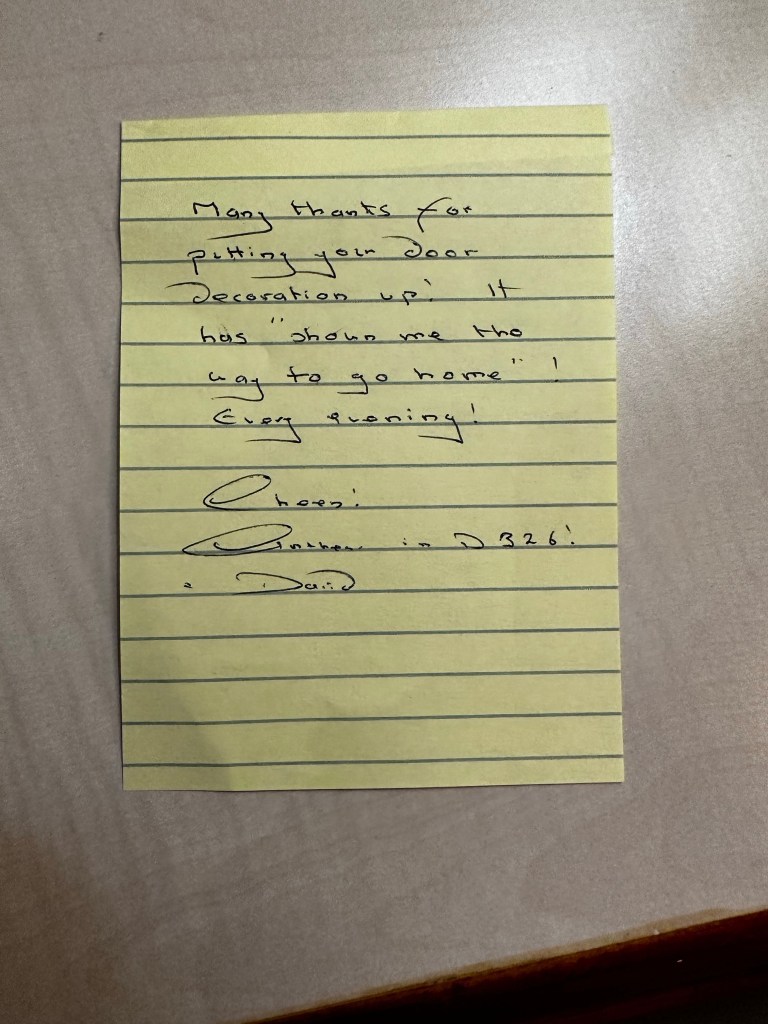 Many thanks for
putting your door
decoration up! It
has "shown me the
way to go home"!
Every evening!
Cheers!
in D326!
- David